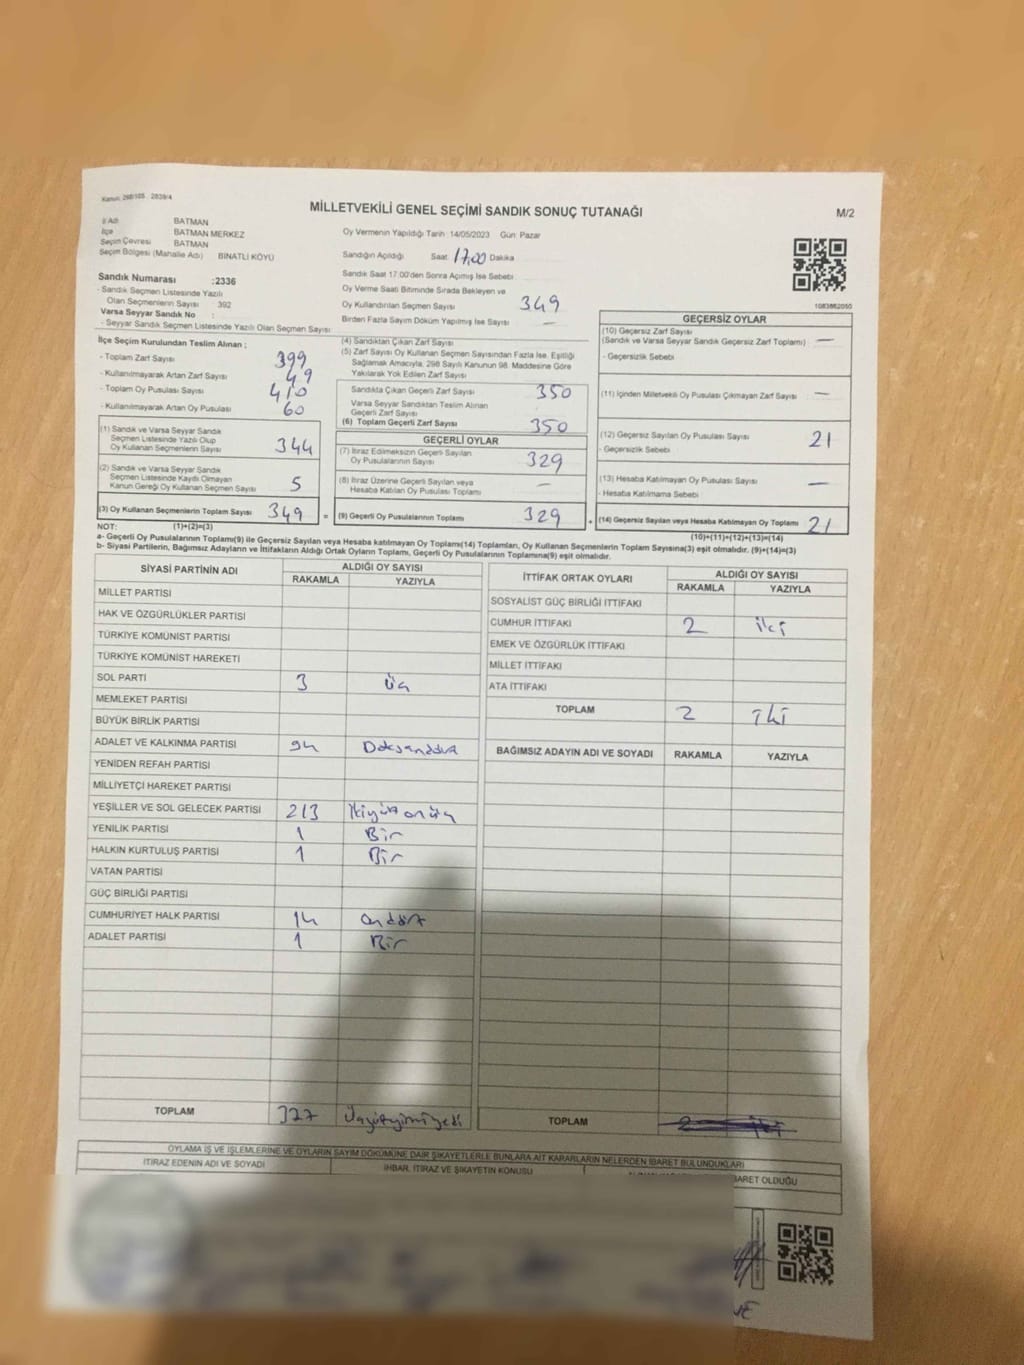 Kanun: 298/105 2839/4
MİLLETVEKİLİ GENEL SEÇİMİ SANDIK SONUÇ TUTANAĞI
M/2
İl Adı BATMAN
İlçe BATMAN MERKEZ
Seçim Çevresi BATMAN
Seçim Bölgesi (Mahalle Adı) BİNATLI KÖYÜ
Sandık Numarası :2336
- Sandık Seçmen Listesinde Yazılı
Olan Seçmenlerin Sayısı 392
Varsa Seyyar Sandık No :
- Seyyar Sandık Seçmen Listesinde Yazılı Olan Seçmen Sayısı
Oy Vermenin Yapıldığı Tarih 14/05/2023 Gün: Pazar
Sandığın Açıldığı Saat 17,00 Dakika
Sandık Saat 17:00'den Sonra Açılmış İse Sebebi
Oy Verme Saati Bitiminde Sırada Bekleyen ve
Oy Kullandırılan Seçmen Sayısı 349
Birden Fazla Sayım Döküm Yapılmış İse Sayısı —
1083862050
İlçe Seçim Kurulundan Teslim Alınan ;
- Toplam Zarf Sayısı 399
- Kullanılmayarak Artan Zarf Sayısı 49
- Toplam Oy Pusulası Sayısı 410
- Kullanılmayarak Artan Oy Pusulası 60
(1) Sandık ve Varsa Seyyar Sandık
Seçmen Listesinde Yazılı Olup
Oy Kullanan Seçmenlerin Sayısı 344
(2) Sandık ve Varsa Seyyar Sandık
Seçmen Listesinde Kaydı Olmayan
Kanun Gereği Oy Kullanan Seçmen Sayısı 5
(3) Oy Kullanan Seçmenlerin Toplam Sayısı 349 =
(1)+(2)=(3)
(4) Sandıktan Çıkan Zarf Sayısı
(5) Zarf Sayısı Oy Kullanan Seçmen Sayısından Fazla İse, Eşitliği
Sağlamak Amacıyla, 298 Sayılı Kanunun 98. Maddesine Göre
Yakılarak Yok Edilen Zarf Sayısı
Sandıkta Çıkan Geçerli Zarf Sayısı 350
Varsa Seyyar Sandıktan Teslim Alınan
Geçerli Zarf Sayısı
(6) Toplam Geçerli Zarf Sayısı 350
GEÇERLİ OYLAR
(7) İtiraz Edilmeksizin Geçerli Sayılan
Oy Pusulalarının Sayısı 329
(8) İtiraz Üzerine Geçerli Sayılan veya
Hesaba Katılan Oy Pusulası Toplamı —
(9) Geçerli Oy Pusulalarının Toplamı 329 +
GEÇERSİZ OYLAR
(10) Geçersiz Zarf Sayısı
(Sandık ve Varsa Seyyar Sandık Geçersiz Zarf Toplamı) —
- Geçersizlik Sebebi
(11) İçinden Milletvekili Oy Pusulası Çıkmayan Zarf Sayısı —
(12) Geçersiz Sayılan Oy Pusulası Sayısı 21
- Geçersizlik Sebebi
(13) Hesaba Katılmayan Oy Pusulası Sayısı —
- Hesaba Katılmama Sebebi
(14) Geçersiz Sayılan veya Hesaba Katılmayan Oy Toplamı 21
(10)+(11)+(12)+(13)=(14)
NOT:
a- Geçerli Oy Pusulalarının Toplamı(9) ile Geçersiz Sayılan veya Hesaba katılmayan Oy Toplamı(14) Toplamları, Oy Kullanan Seçmenlerin Toplam Sayısına(3) eşit olmalıdır. (9)+(14)=(3)
b- Siyasi Partilerin, Bağımsız Adayların ve İttifakların Aldığı Ortak Oyların Toplamı, Geçerli Oy Pusulalarının Toplamına(9) eşit olmalıdır.
SİYASİ PARTİNİN ADI ALDIĞI OY SAYISI
RAKAMLA YAZIYLA
MİLLET PARTİSİ
HAK VE ÖZGÜRLÜKLER PARTİSİ
TÜRKİYE KOMÜNİST PARTİSİ
TÜRKİYE KOMÜNİST HAREKETİ
SOL PARTİ 3 Üç
MEMLEKET PARTİSİ
BÜYÜK BİRLİK PARTİSİ
ADALET VE KALKINMA PARTİSİ 94 Doksandört
YENİDEN REFAH PARTİSİ
MİLLİYETÇİ HAREKET PARTİSİ
YEŞİLLER VE SOL GELECEK PARTİSİ 213 İkiyüz onüç
YENİLİK PARTİSİ 1 Bir
HALKIN KURTULUŞ PARTİSİ 1 Bir
VATAN PARTİSİ
GÜÇ BİRLİĞİ PARTİSİ
CUMHURİYET HALK PARTİSİ 14 Ondört
ADALET PARTİSİ 1 Bir
TOPLAM 327 Üçyüzyirmiyedi
İTTİFAK ORTAK OYLARI ALDIĞI OY SAYISI
RAKAMLA YAZIYLA
SOSYALİST GÜÇ BİRLİĞİ İTTİFAKI
CUMHUR İTTİFAKI 2 iki
EMEK VE ÖZGÜRLÜK İTTİFAKI
MİLLET İTTİFAKI
ATA İTTİFAKI
TOPLAM 2 İki
BAĞIMSIZ ADAYIN ADI VE SOYADI RAKAMLA YAZIYLA
TOPLAM 2 iki
OYLAMA İŞ VE İŞLEMLERİNE VE OYLARIN SAYIM DÖKÜMÜNE DAİR ŞİKAYETLERLE BUNLARA AİT KARARLARIN NELERDEN İBARET BULUNDUKLARI
İTİRAZ EDENİN ADI VE SOYADI İHBAR, İTİRAZ VE ŞİKAYETİN KONUSU
İBARET OLDUĞU